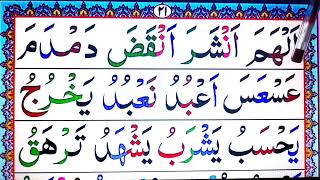 ٢١
اَلْهَمَ اَنْشَرَ اَنْقَضَ دَمْدَمَ
عَسْعَسَ اَعْبُدُ نَعْبُدُ يَخْرُجُ
يَحْسَبُ يَشْرَبُ يَشْهَدُ تَرْهَقُ